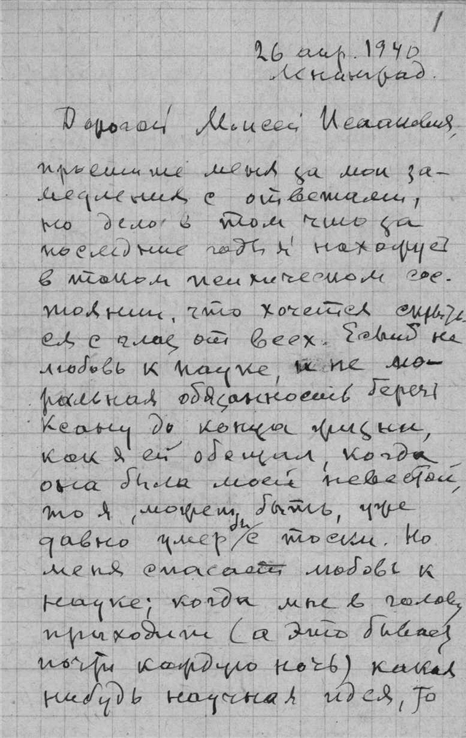 1
26 апр. 1940
Ленинград.
Дорогой Моисей Исаакович,
простите меня за мои за-
медления с ответами,
но дело в том что за
последние годы я нахожусь
в таком психическом сос-
тоянии, что хочется скрыть
ся с глаз от всех. Если б не
любовь к науке, и не мо-
ральная обязанность беречь
Ксану до конца жизни,
как я ей обещал, когда
она была моей невестой,
то я, может быть, уже
давно умер бы с тоски. Но
меня спасает любовь к
науке; когда мне в голову
приходит (а это бывает
почти каждую ночь) какая
нибудь научная идея, то